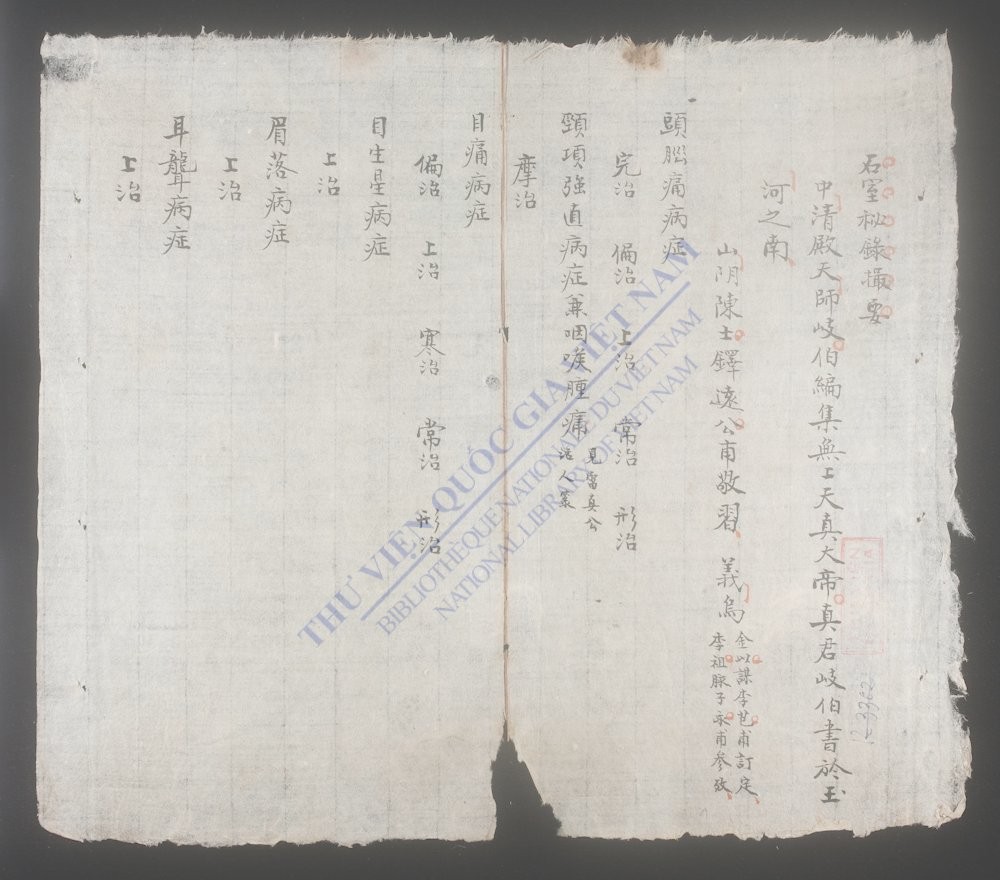 石室秘錄撮要
中清殿天師岐伯編集無上天真大帝真君岐伯書於玉
河之南
山阴陳士鐸遠公甫敬習 義烏
金以謀李芑甫訂定
李祖脉子永甫參攷
頭腦痛病症
完治 偏治 上治 常治 形治
頸項強直病症兼咽喉腫痛
見雷真公
活人篆
摩治
目痛病症
偏治 上治 寒治 常治 形治
目生星病症
上治
眉落病症
上治
耳聾病症
上治
THƯ VIỆN QUỐC GIA VIỆT NAM
BIBLIOTHÈQUE NATIONALE DU VIETNAM
NATIONAL LIBRARY OF VIETNAM